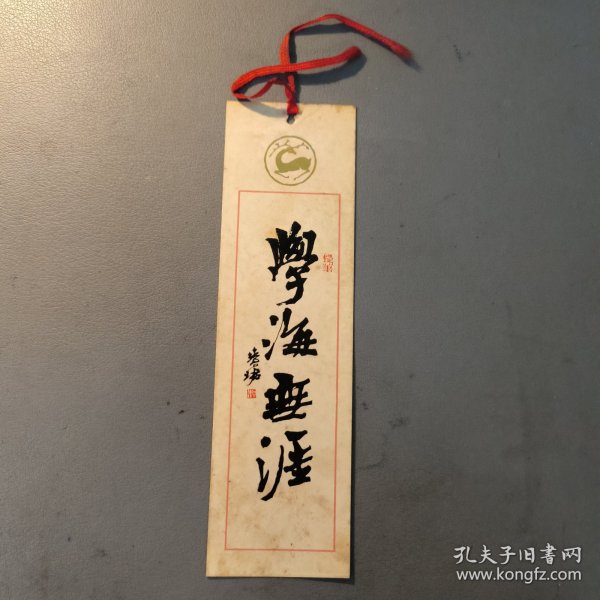 學海無涯
孔夫子旧书网
www.kongfz.com